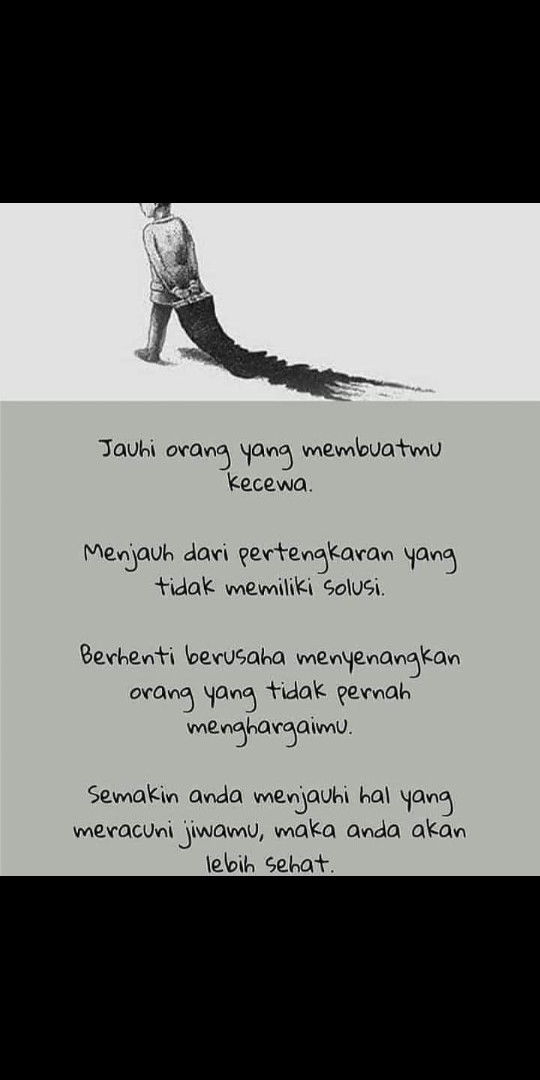 Jauhi orang yang membuatmu
kecewa.
Menjauh dari pertengkaran yang
tidak memiliki solusi.
Berhenti berusaha menyenangkan
orang yang tidak pernah
menghargaimu.
Semakin anda menjauhi hal yang
meracuni jiwamu, maka anda akan
lebih sehat.